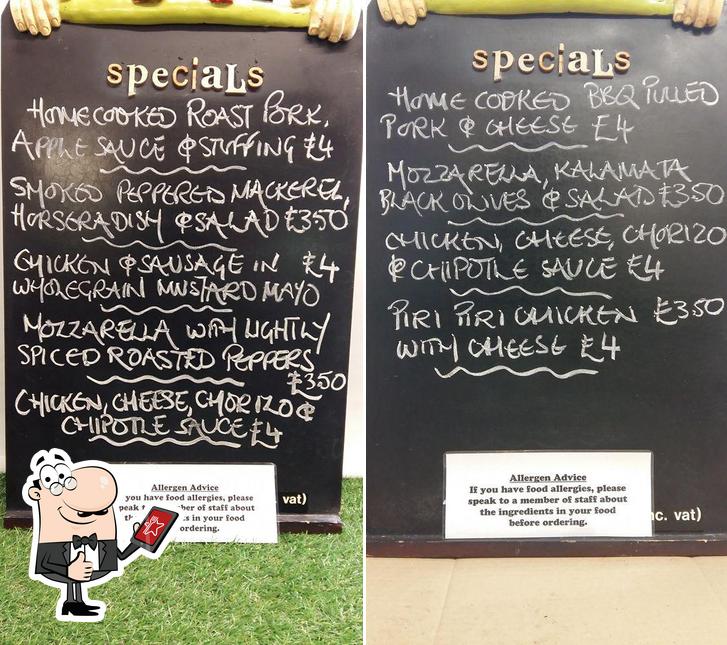 specials
HOMECOOKED ROAST PORK,
APPLE SAUCE & STUFFING £4
SMOKED PEPPERED MACKEREL,
HORSERADISH & SALAD £3.50
CHICKEN & SAUSAGE IN £4
WHOLEGRAIN MUSTARD MAYO
MOZZARELLA WITH LIGHTLY
SPICED ROASTED PEPPERS
£3.50
CHICKEN, CHEESE, CHORIZO &
CHIPOTLE SAUCE £4
Allergen Advice
you have food allergies, please
member of staff about
in your food
ordering.
vat)
specials
HOME COOKED BBQ PULLED
PORK & CHEESE £4
MOZZARELLA, KALAMATA
BLACK OLIVES & SALAD £3.50
CHICKEN, CHEESE, CHORIZO
& CHIPOTLE SAUCE £4
PIRI PIRI CHICKEN £3.50
WITH CHEESE £4
Allergen Advice
If you have food allergies, please
speak to a member of staff about
the ingredients in your food
before ordering.
nc. vat)